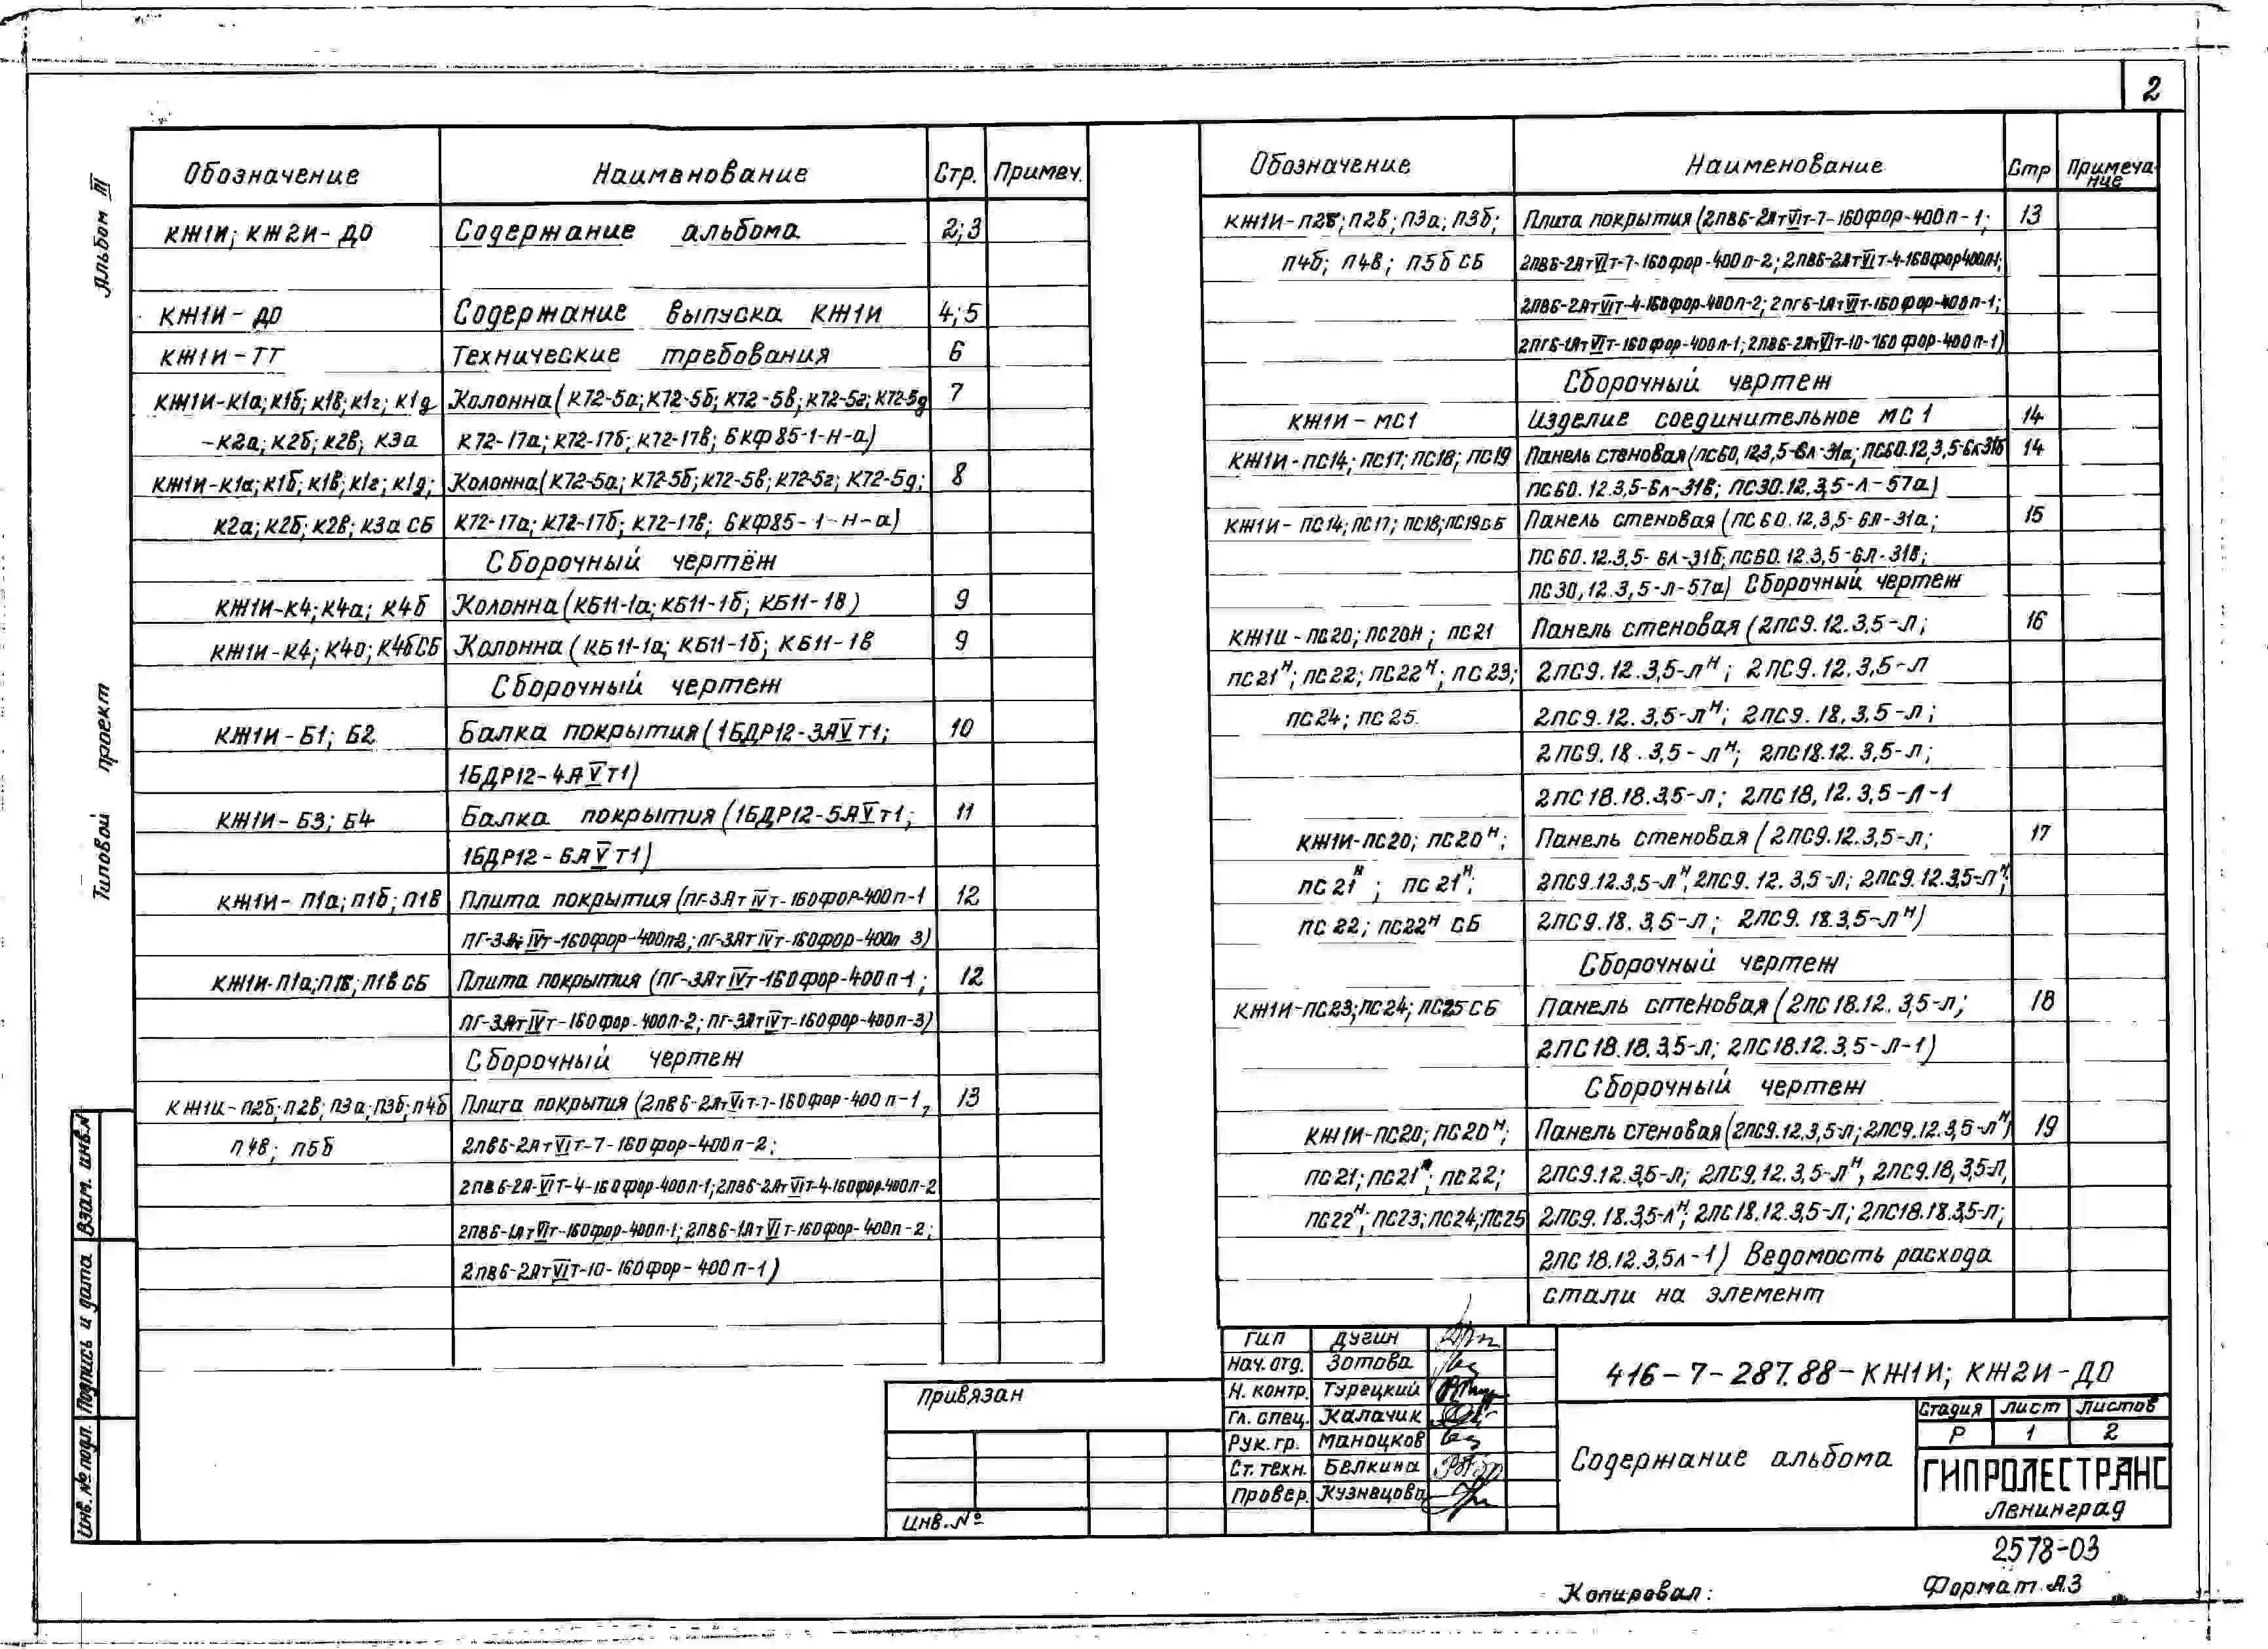 2
Альбом III
Типовой проект
Обозначение Наименование Стр. Примеч.
КЖ1И; КЖ2И-ДО Содержание альбома 2;3
КЖ1И-ДО Содержание выпуска КЖ1И 4;5
КЖ1И-ТТ Технические требования 6
КЖ1И-К1а; К1б; К1в; К1г; К1д Колонна (К72-5а; К72-5б; К72-5в; К72-5г; К72-5д 7
-К2а; К2б; К2в; К3а К72-17а; К72-17б; К72-17в; 6КФ85-1-Н-а)
КЖ1И-К1а; К1б; К1в; К1г; К1д; Колонна (К72-5а; К72-5б; К72-5в; К72-5г; К72-5д; 8
К2а; К2б; К2в; К3а СБ К72-17а; К72-17б; К72-17в; 6КФ85-1-Н-а)
Сборочный чертёж
КЖ1И-К4; К4а; К4б Колонна (КБ11-1а; КБ11-1б; КБ11-1в) 9
КЖ1И-К4; К4а; К4б СБ Колонна (КБ11-1а; КБ11-1б; КБ11-1в 9
Сборочный чертеж
КЖ1И-Б1; Б2 Балка покрытия (1БДР12-3АV Т1; 10
1БДР12-4АV Т1)
КЖ1И-Б3; Б4 Балка покрытия (1БДР12-5АV Т1; 11
1БДР12-6АV Т1)
КЖ1И-П1а; П1б; П1в Плита покрытия (ПГ-3АтIVт-160фор-400п-1 12
ПГ-3АтIVт-160фор-400п2; ПГ-3АтIVт-160фор-400п 3)
КЖ1И-П1а; П1б; П1в СБ Плита покрытия (ПГ-3АтIVт-160фор-400п-1; 12
ПГ-3АтIVт-160фор-400п-2; ПГ-3АтIVт-160фор-400п-3)
Сборочный чертеж
КЖ1И-П2б; П2в; П3а; П3б; П4б Плита покрытия (2ПВ6-2АтVIт-7-160фор-400п-1, 13
П4в; П5б 2ПВ6-2АтVIт-7-160фор-400п-2;
2ПВ6-2А-VIт-4-160фор-400п-1; 2ПВ6-2АтVIт-4-160фор-400п-2
2ПВ6-1АтVIт-160фор-400п-1; 2ПВ6-1АтVIт-160фор-400п-2;
2ПВ6-2АтVIт-10-160фор-400п-1)
Обозначение Наименование Стр Примечание
КЖ1И-П2б; П2в; П3а; П3б; Плита покрытия (2ПВ6-2АтVIт-7-160фор-400п-1; 13
П4б; П4в; П5б СБ 2ПВ6-2АтVIт-7-160фор-400п-2; 2ПВ6-2АтVIт-4-160фор400п-1;
2ПВ6-2АтVIт-4-160фор-400п-2; 2ПГ6-1АтVIт-160фор-400п-1;
2ПГ6-1АтVIт-160фор-400п-1; 2ПВ6-2АтVIт-10-160фор-400п-1)
Сборочный чертеж
КЖ1И-МС1 Изделие соединительное МС1 14
КЖ1И-ПС14; ПС17; ПС18; ПС19 Панель стеновая (ПС60.12.3,5-6л-31а; ПС60.12.3,5-6л31б 14
ПС60.12.3,5-6л-31в; ПС30.12.3,5-Л-57а)
КЖ1И-ПС14; ПС17; ПС18; ПС19СБ Панель стеновая (ПС60.12.3,5-6л-31а; 15
ПС60.12.3,5-6л-31б; ПС60.12.3,5-6л-31в;
ПС30.12.3,5-л-57а) Сборочный чертеж
КЖ1И-ПС20; ПС20Н; ПС21 Панель стеновая (2ПС9.12.3,5-л; 16
ПС21Н; ПС22; ПС22Н; ПС23; 2ПС9.12.3,5-лН; 2ПС9.12.3,5-л
ПС24; ПС25. 2ПС9.12.3,5-лН; 2ПС9.18.3,5-л;
2ПС9.18.3,5-лН; 2ПС18.12.3,5-л;
2ПС18.18.3,5-л; 2ПС18.12.3,5-л-1
КЖ1И-ПС20; ПС20Н; Панель стеновая (2ПС9.12.3,5-л; 17
ПС21Н; ПС21Н; 2ПС9.12.3,5-лН; 2ПС9.12.3,5-л; 2ПС9.12.3,5-лН;
ПС22; ПС22Н СБ 2ПС9.18.3,5-л; 2ПС9.18.3,5-лН)
Сборочный чертеж
КЖ1И-ПС23; ПС24; ПС25 СБ Панель стеновая (2ПС18.12.3,5-л; 18
2ПС18.18.3,5-л; 2ПС18.12.3,5-л-1)
Сборочный чертеж
КЖ1И-ПС20; ПС20Н; Панель стеновая (2ПС9.12.3,5-л; 2ПС9.12.3,5-лН) 19
ПС21; ПС21Н; ПС22; 2ПС9.12.3,5-л; 2ПС9.12.3,5-лН, 2ПС9.18.3,5-л,
ПС22Н; ПС23; ПС24; ПС25 2ПС9.18.3,5-лН; 2ПС18.12.3,5-л; 2ПС18.18.3,5-л;
2ПС18.12.3,5л-1) Ведомость расхода
стали на элемент
Взам. инв.№
Подпись и дата
Инв. № подл.
Привязан
Инв. №
ГИП Дугин
Нач. отд. Зотова
Н. контр. Турецкий
Гл. спец. Калачик
Рук. гр. Маноцков
Ст. техн. Белкина
Провер. Кузнецова
416-7-287.88-КЖ1И; КЖ2И-ДО
Содержание альбома
Стадия Лист Листов
Р 1 2
ГИПРОЛЕСТРАНС
Ленинград
2578-03
Копировал:
Формат А3